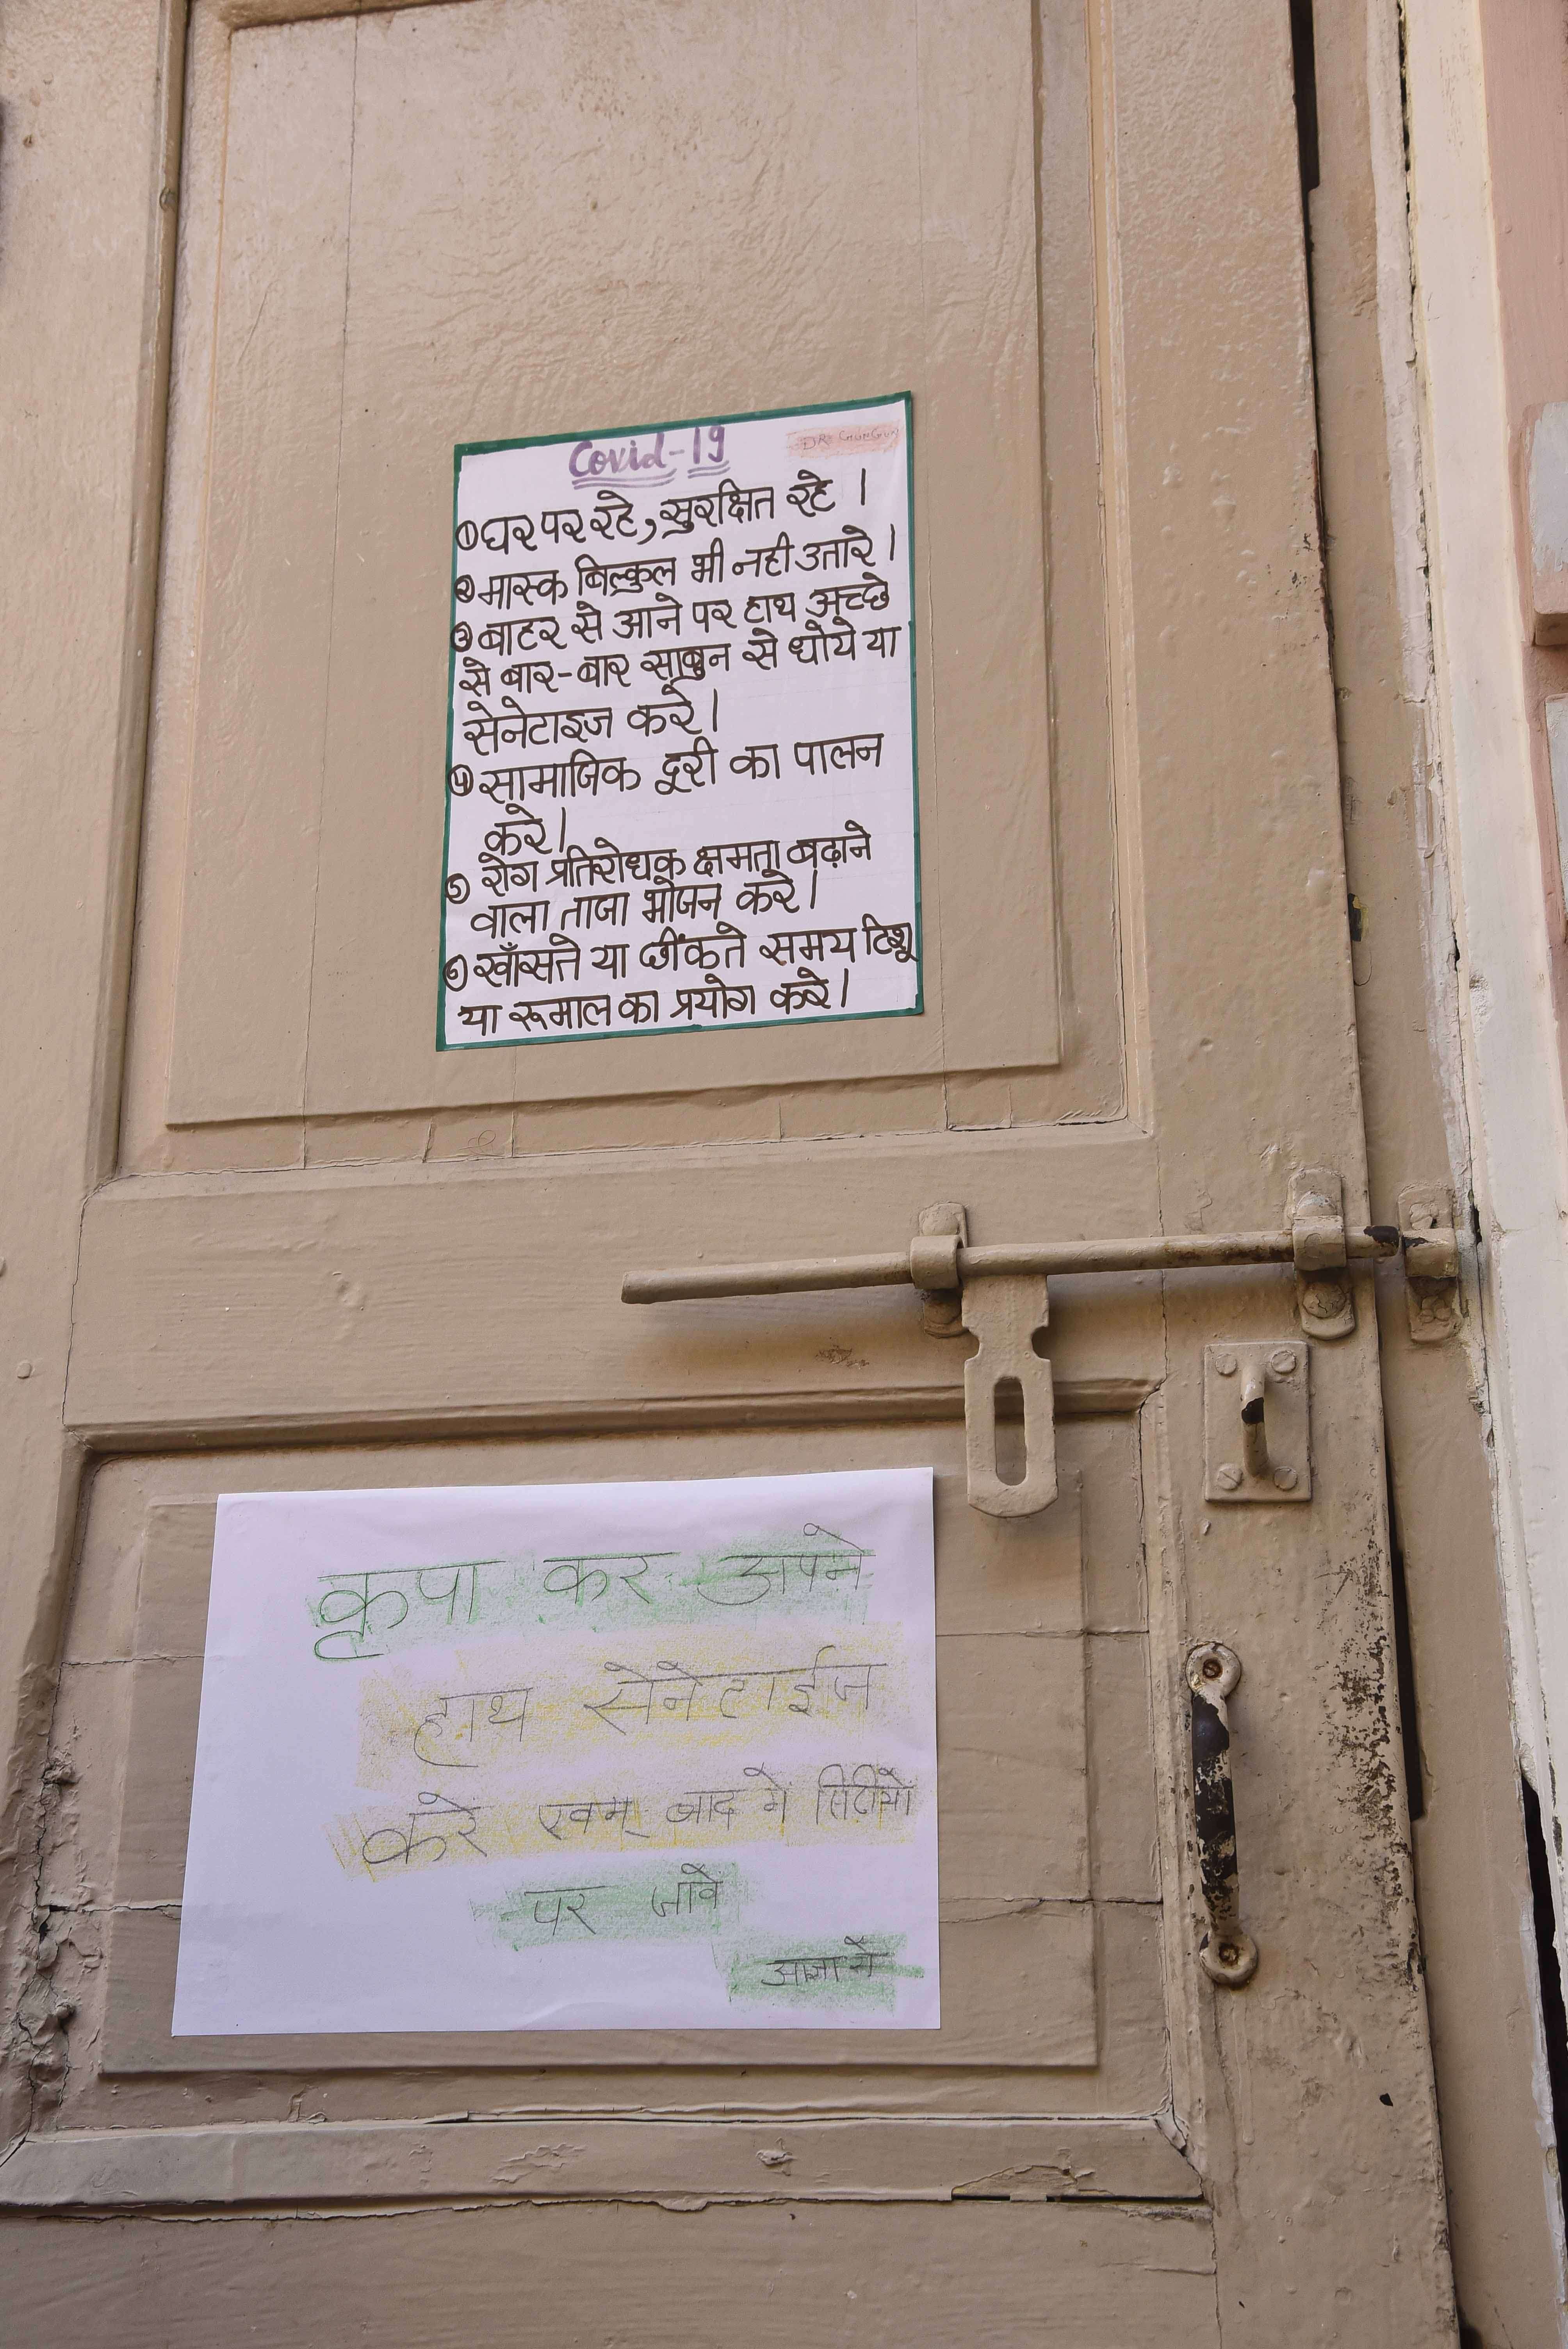 Covid-19
DR. GUNGUN
① घर पर रहे, सुरक्षित रहे ।
② मास्क बिल्कुल भी नही उतारे ।
③ बाहर से आने पर हाथ अच्छे
से बार-बार साबुन से धोये या
सेनेटाइज करे ।
④ सामाजिक दूरी का पालन
करे ।
⑤ रोग प्रतिरोधक क्षमता बढ़ाने
वाला ताजा भोजन करे ।
⑥ खाँसते या छींकते समय टिशू
या रूमाल का प्रयोग करे ।
कृपा कर अपने
हाथ सेनेटाईज
करे एवम् बाद मे
पर जावे